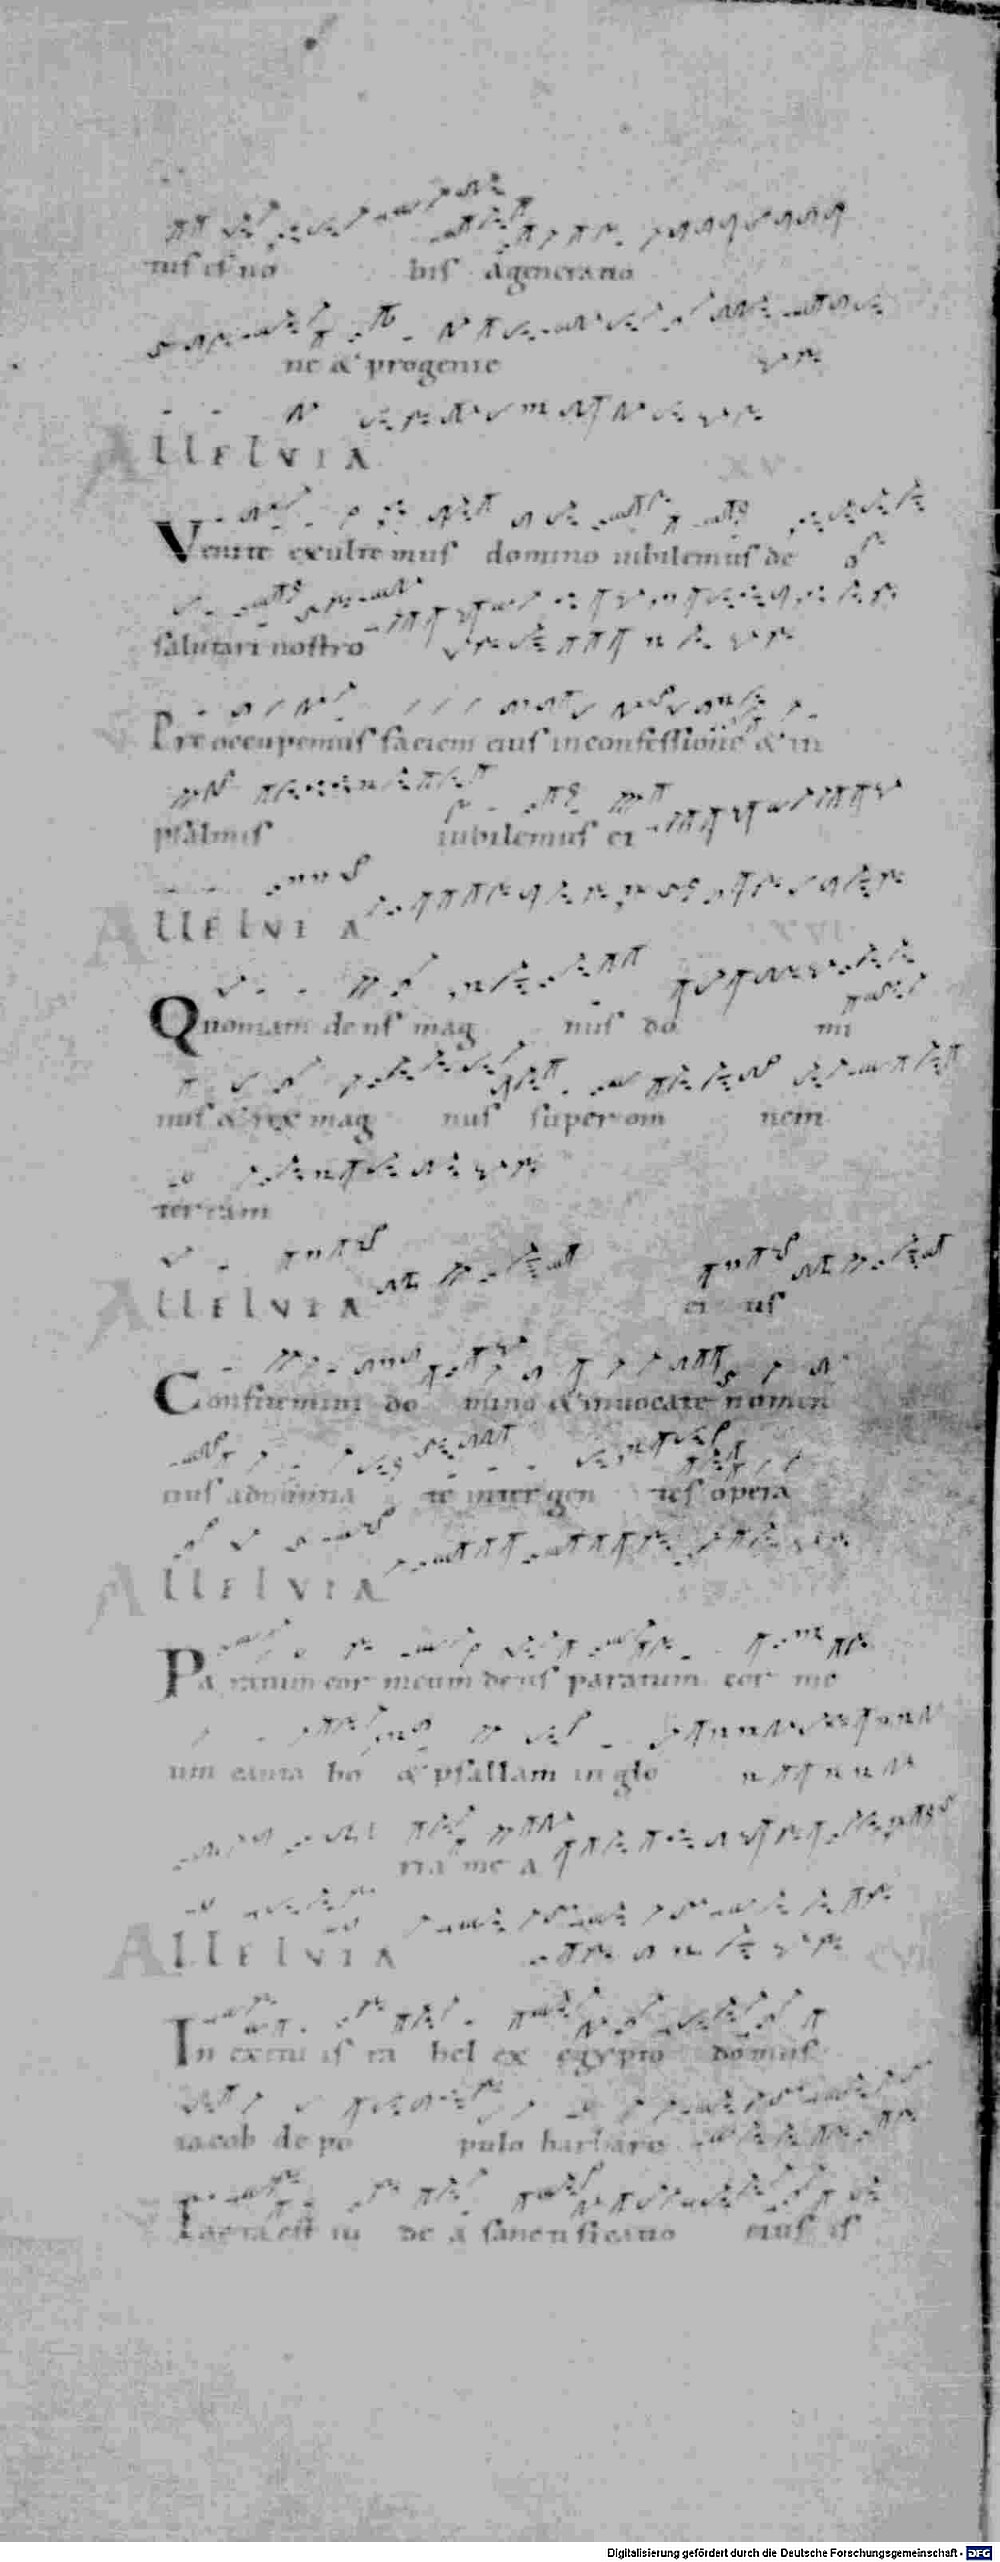 tus es no bis a generatio
ne & progenie
ALLELVIA
XV
Venite exultemus domino iubilemus de o
salutari nostro
Preoccupemus faciem eius in confessione & in
psalmis iubilemus ei
ALLELVI A
XVI
Quoniam deus mag nus do mi
nus & rex mag nus super om nem
terram
ALLELVIA ei us
Confitemini do mino & inuocate nomen
eius adnuncia te inter gen tes opera
ALLELVIA
Pa ratum cor meum deus paratum cor me
um canta bo & psallam in glo
ria me a
ALLELVIA
In exitu is ra hel ex egypto domus
iacob de po pulo barbaro
Facta est iu de a sanctificatio eius is
Digitalisierung gefördert durch die Deutsche Forschungsgemeinschaft - DFG